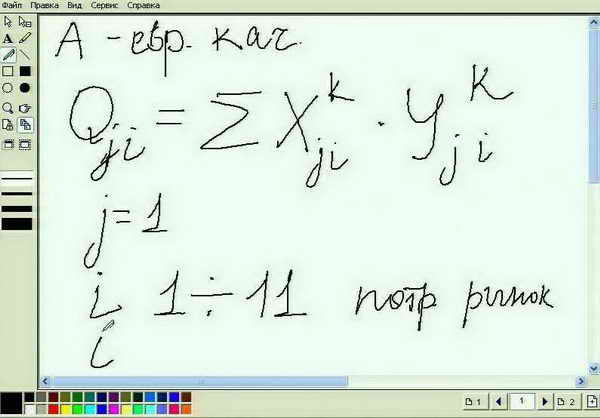 Файл Правка Вид Сервис Справка
А - евр. кач.
Q_ji = Σ X_ji^k · y_ji^k
j = 1
i 1 ÷ 11 потр ринок
i
1 1 2